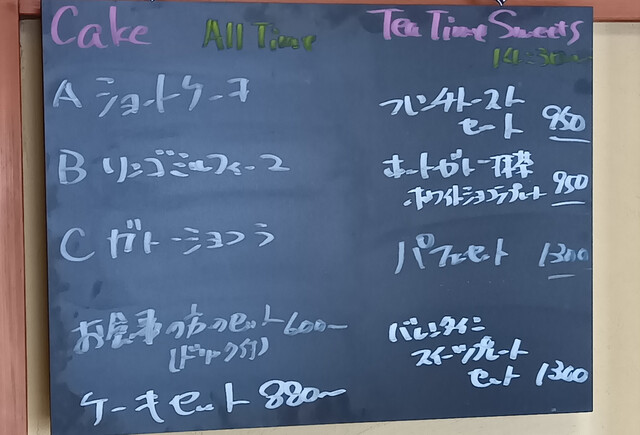 Cake All Time
A ショートケーキ
B リンゴミルフィーユ
C ガトーショコラ
お食事の方のセット 600〜
(ドリンク付)
ケーキセット 880〜
Tea Time Sweets
14:30〜
フレンチトースト
セート 950
ホワイトショコラプレート 950
パフェセット 1300
バレンタイン
スイーツプレート
セット 1300